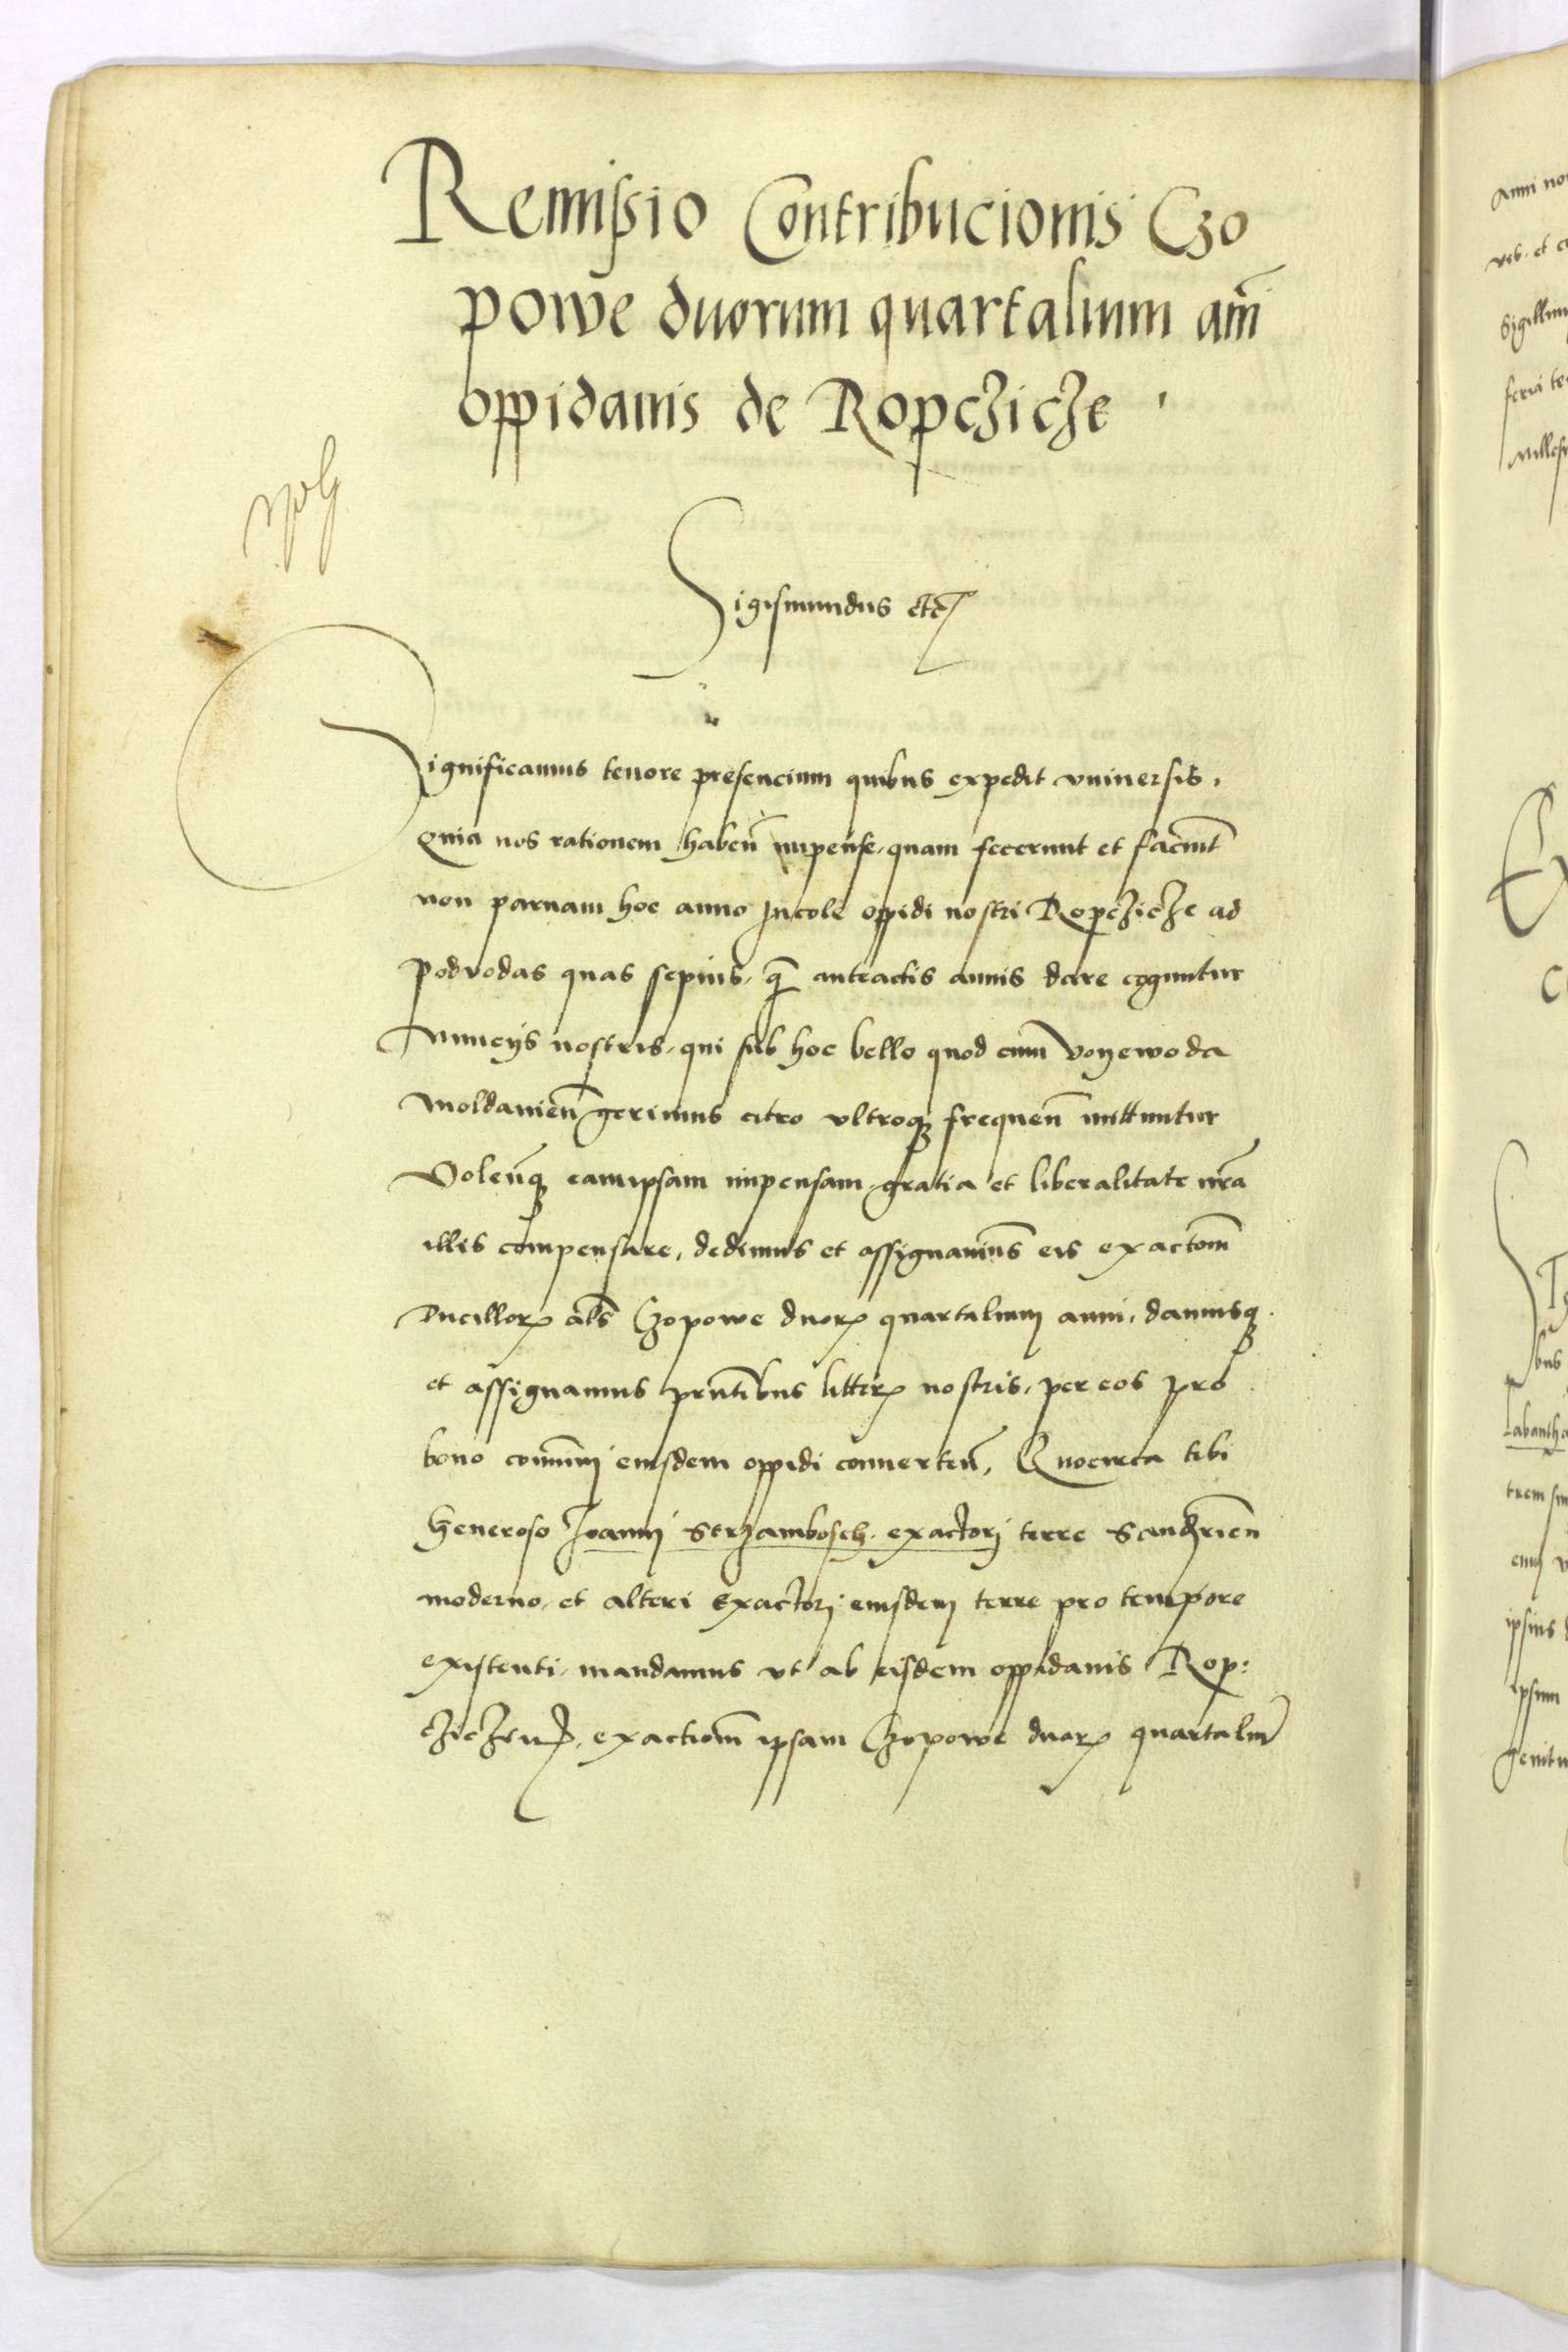 Remissio Contribucionis Czo
powe duorum quartalium anni
oppidanis de Ropczicze
Sigismundus etc
Significamus tenore presencium quibus expedit vniuersis.
Quia nos rationem haben̄ impense, quam fecerunt et faciūt
non paruam hoc anno Incole oppidi nostri Ropczicze ad
podvodas quas sepius, q̄ anteactis annis dare coguntur
Nuncijs nostris, qui sub hoc bello quod cum voyewoda
Moldauien̄ gerimus citro vltroq; frequen̄ mittuntur
Volen̄q; eam ipsam impensam, gratia et liberalitate nr̄a
illis compensare, dedimus et assignauimus eis exactiōm
Ducillorꝝ al̄s Czopowe duorꝝ quartalium anni, damusq;
et assignamus pn̄tibus litterꝝ nostris, per eos pro
bono comm̄i eiusdem oppidi conuerten̄, Quocirca tibi
Generoso Joanni Strzambosch, exactori terre Sandomirien̄
moderno, et alteri exactori eiusdem terre pro tempore
existenti, mandamus vt ab eisdem oppidanis Rop:
czicen̄, exactiōm ipsam Czopowe duorꝝ quartaliū
Anni
veb. et
Sigillum
feria
Millesi
bus
Labantha
ipsius
ipsum